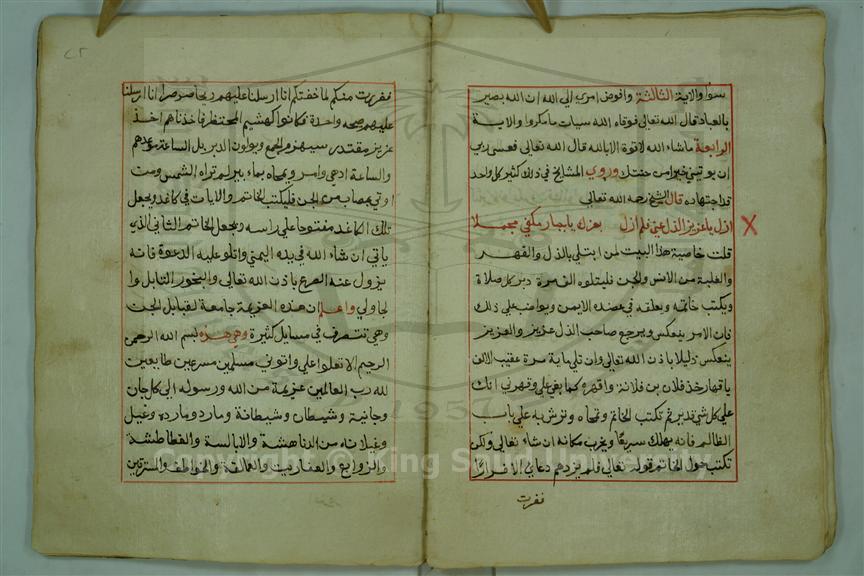 سوا والاية الثالثة وافوض امري الى الله ان الله بصير
بالعباد قال الله تعالى فوقاه الله سيات ما مكروا والاية
الرابعة ماشاء الله لا قوة الا بالله قال الله تعالى فعسى ربي
ان يوتيني خيرا من جنتك وروي المشايخ في ذلك كثير كل واحد
قد اجتهاده قال الشيخ رحه الله تعالى
ازل يا عزيز الذل عني فلم ازل بعزك يا جبار مكفي مجملا
قلت خاصية هذا البيت لمن ابتلي بالذل والقهر
والغلبة من الانس والجن فليتلوه دبر كل صلاة
ويكتب خاتمه ويعلقه في عضده الايمن ويواضب على ذلك
فان الامر ينعكس ويرجع صاحب الذل عزيز والعزيز
ينعكس ذليلا باذن الله تعالى وان تلي ماية مرة عقيب الالف
يا قهار خذ فلان بن فلانة واقهره كما بغي علي وقهرني انك
على كل شي قدير ثم تكتب الخاتم وتمحاه وترش به على باب
الظالم فانه يهلك سريعا ويخرب مكانه ان شاء تعالى ولكن
تكتب حول الخاتم قوله تعالى فلم يزدهم دعاي الا فرارا
ففررت
ففررت منكم لما خفتكم انا ارسلنا عليهم ريحا صرصرا انا ارسلنا
عليهم صيحه واحدة فكانوا كهشيم المحتظر فاخذناهم اخذ
عزيز مقتدر سيهزم الجمع ويولون الدبر بل الساعة موعدهم
والساعة ادهى وامر ويمحاه بماء بير لم تراه الشمس ومت
اوتي بمصاب من الجن فليكتب الخاتم والايات في كاغد ويجعل
تلك الكاغد مفتوحا على راسه ويجعل الخاتم الثاني الذي
ياتي ان شاء الله في يده اليمنى واتلو عليه الدعوة فانه
يزول عنه الصرع باذن الله تعالى والبخور التابل وا
لجاولي واعلم ان هذه العزيمة جامعة لقبايل الجن
وهي تتصرف في مسايل كثيرة وهي هذه بسم الله الرحمن
الرحيم الا تعلوا علي واتوني مسلمين مسرعين طايعين
لله رب العالمين عزيمة من الله ورسوله الى كل جان
وجانية وشيطان وشيطانة ومارد وماردة وغيل
وغيلانه من الدناهشة والابالسة والغطاطشة
والزوابع والعفاريت والعمالقة والخواطف والمسترقين
Copyright © King Saud University
1957